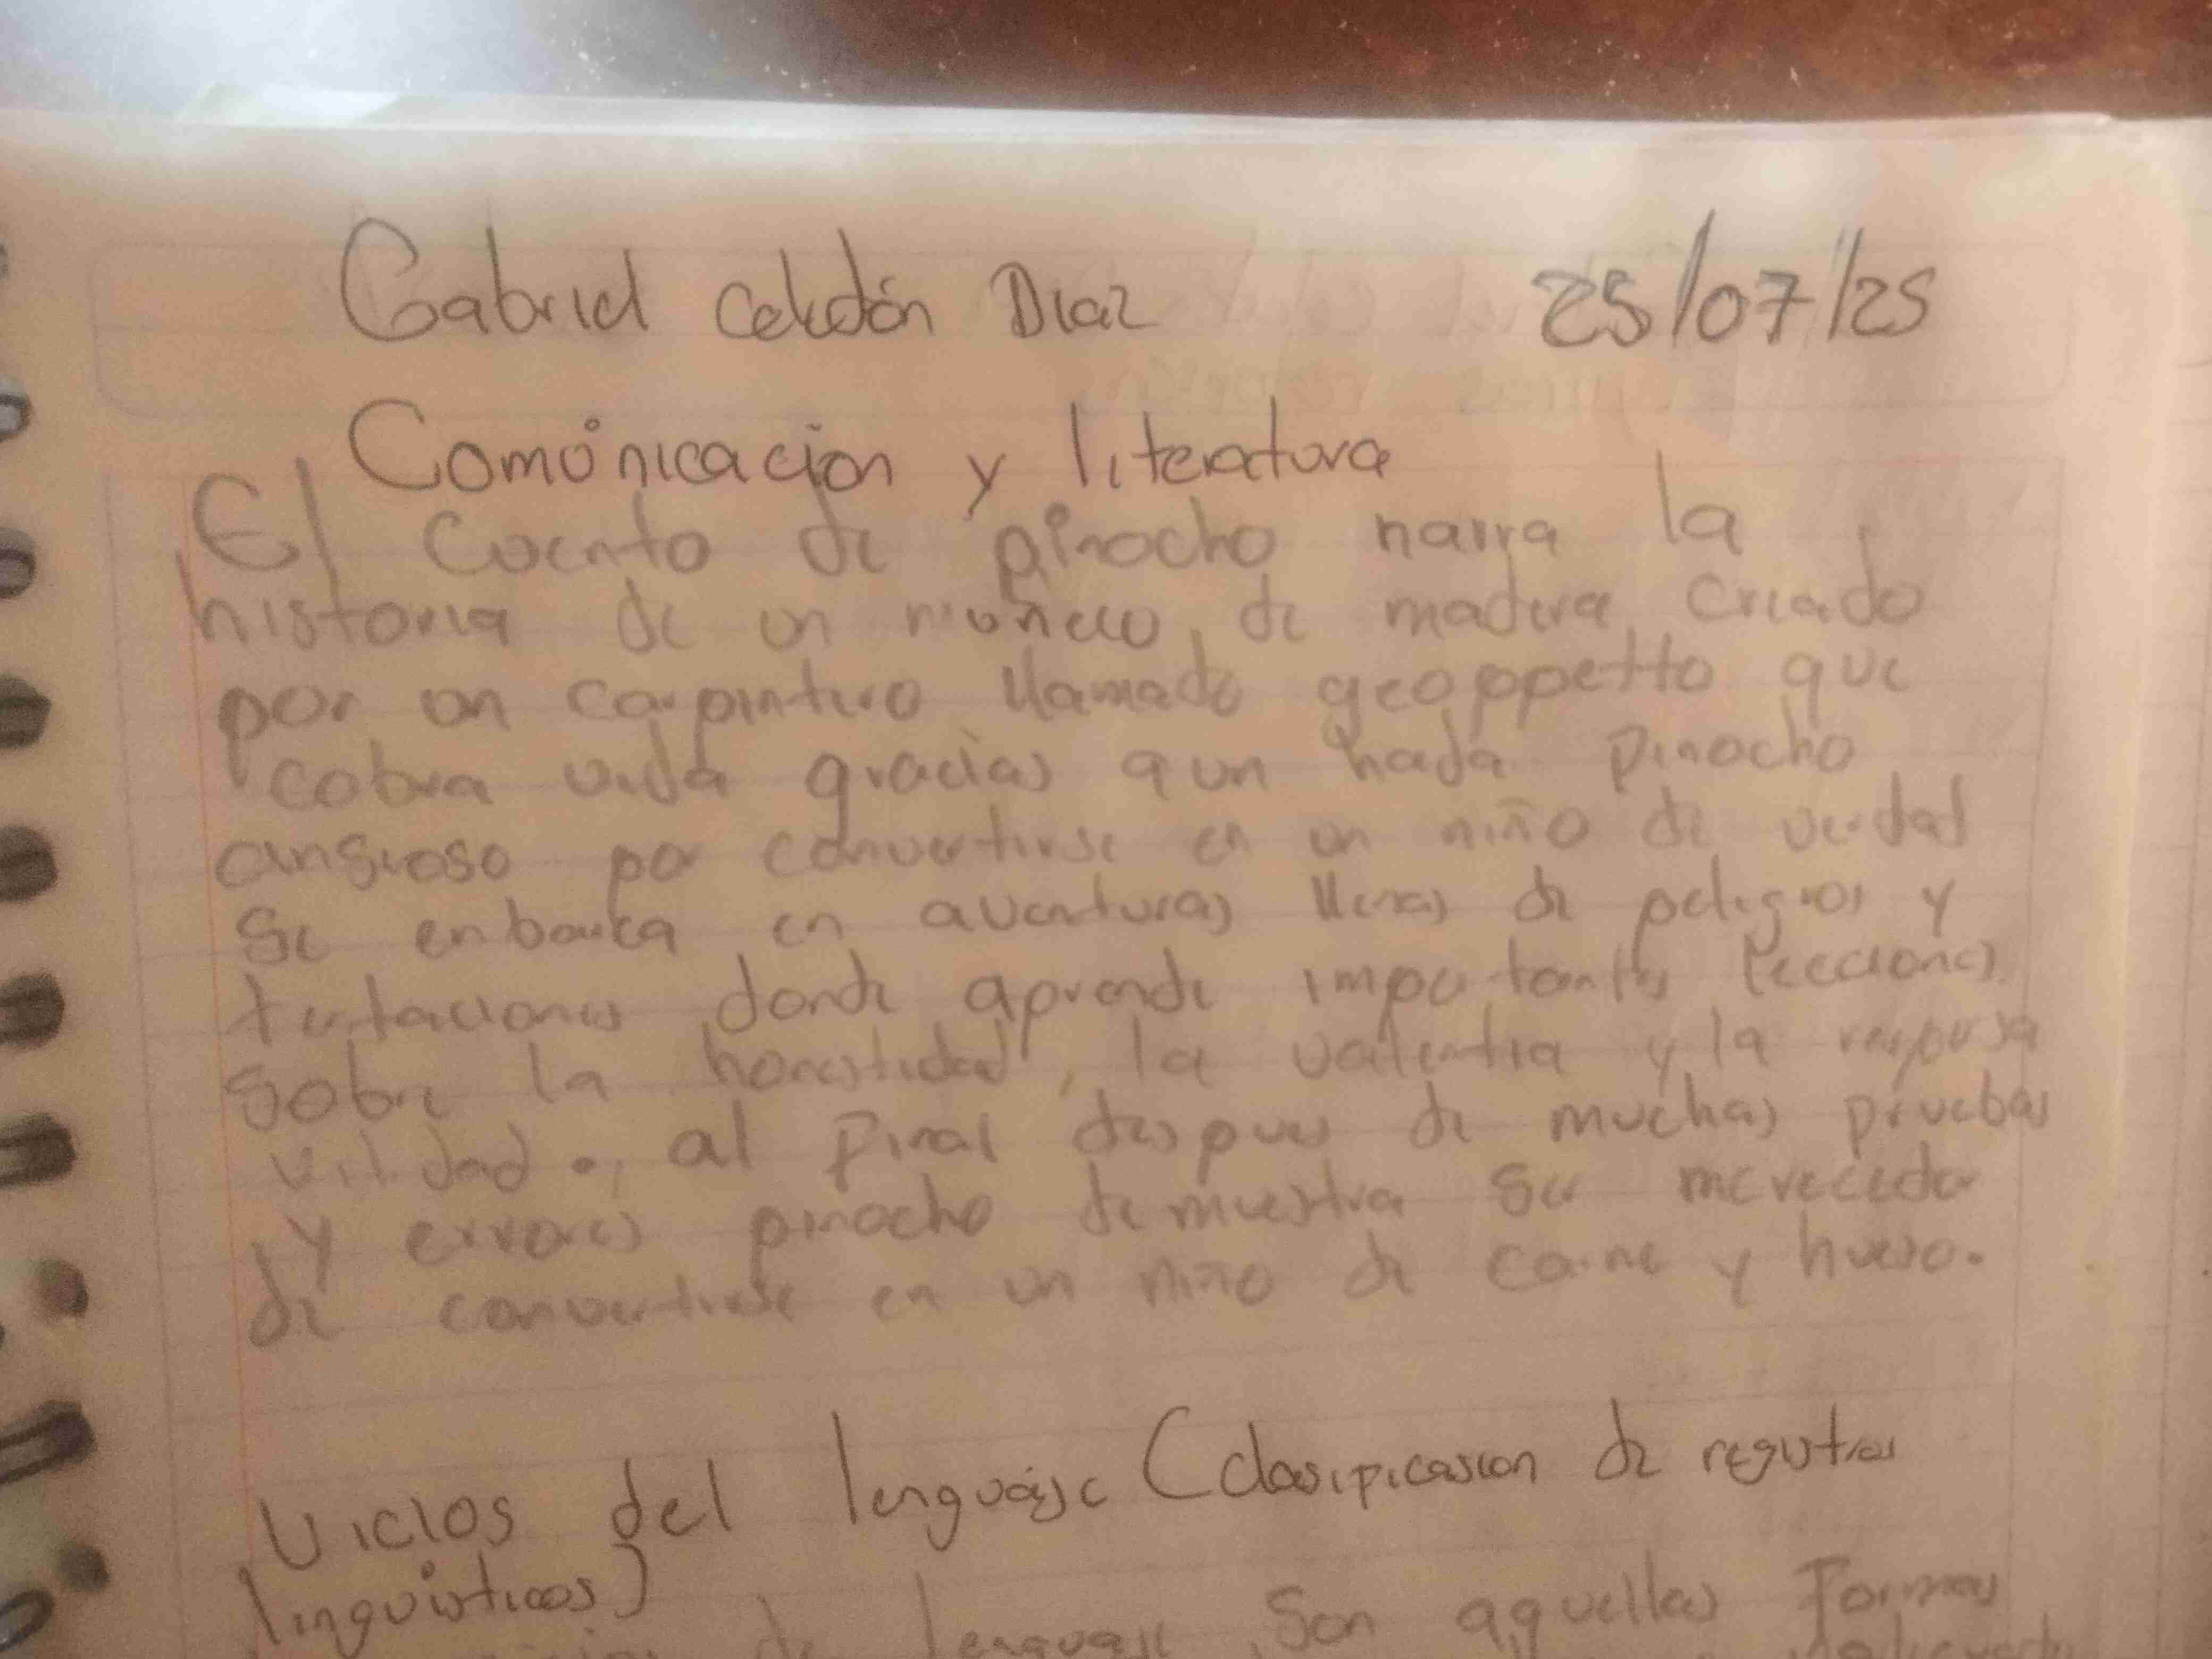 Gabriel Celedón Diaz 25/07/25
Comunicacion y literatura
El cuento de pinocho narra la
historia de un muñeco de madera criado
por un carpintero llamado geoppetto que
cobra vida gracias a un hada pinocho
ansioso por convertirse en un niño de verdad
se enbarca en aventuras llenas de peligros y
tentaciones donde aprende importantes lecciones
sobre la honestidad, la valentia y la responsa
vilidad., al final despues de muchas pruebas
y errores pinocho demuestra ser merecedor
de convertirse en un niño de carne y hueso.
Vicios del lenguaje (clasificasion de registros
linguisticos)
de lenguaje son aquellas formas